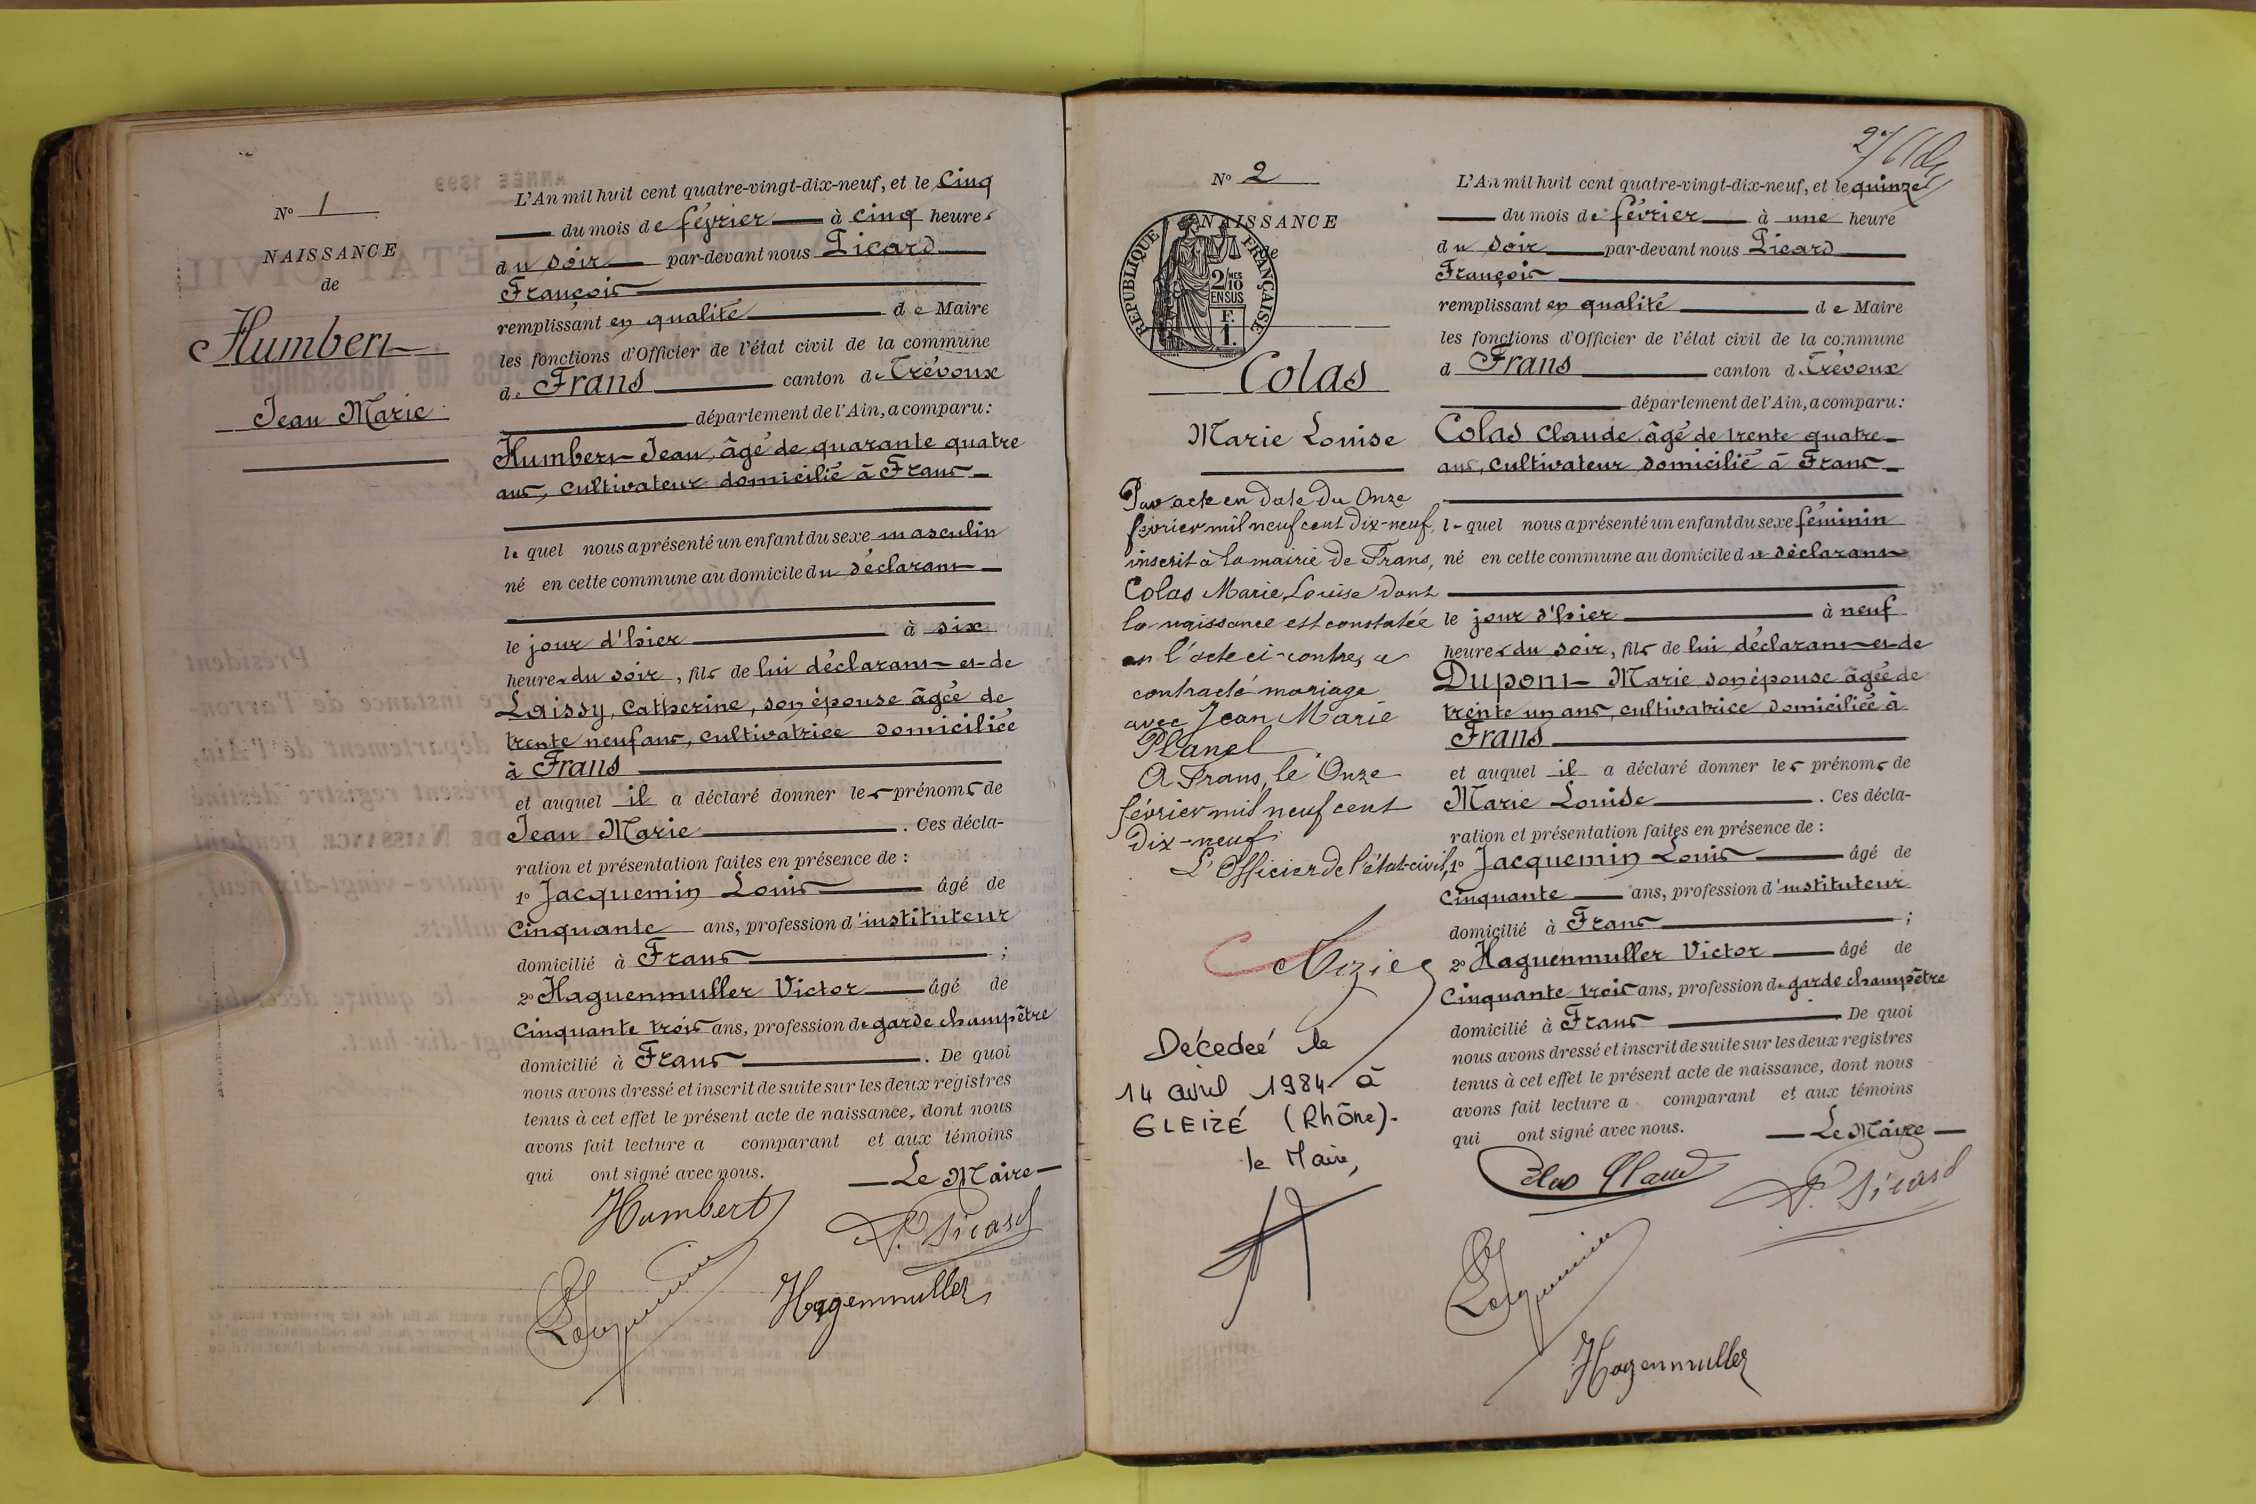 N° 1
NAISSANCE
de
Humbert
Jean Marie
L'An mil huit cent quatre-vingt-dix-neuf, et le cinq
du mois de février à cinq heures
du soir par-devant nous Picard
François
remplissant en qualité de Maire
les fonctions d'Officier de l'état civil de la commune
de Frans canton de Trévoux
département de l'Ain, a comparu :
Humbert Jean, âgé de quarante quatre
ans, cultivateur domicilié à Frans
lequel nous a présenté un enfant du sexe masculin
né en cette commune au domicile du déclarant
le jour d'hier à six
heures du soir, fils de lui déclarant et de
Laissy, Catherine, son épouse âgée de
trente neuf ans, cultivatrice domiciliée
à Frans
et auquel il a déclaré donner les prénoms de
Jean Marie . Ces décla-
ration et présentation faites en présence de :
1° Jacquemin Louis âgé de
cinquante ans, profession d'instituteur
domicilié à Frans ;
2° Haguenmuller Victor âgé de
cinquante trois ans, profession de garde champêtre
domicilié à Frans . De quoi
nous avons dressé et inscrit de suite sur les deux registres
tenus à cet effet le présent acte de naissance, dont nous
avons fait lecture a comparant et aux témoins
qui ont signé avec nous. Le Maire
Humbert
P. Picard
Jacquemin
Hagenmuller
N° 2
NAISSANCE
de
RÉPUBLIQUE FRANÇAISE
2/10 MES
EN SUS
F.
1.
Colas
Marie Louise
Par acte en date du Onze
février mil neuf cent dix-neuf,
inscrit à la mairie de Frans,
Colas Marie Louise dont
la naissance est constatée
en l'acte ci-contre, a
contracté mariage
avec Jean Marie
Planel
A Frans, le Onze
février mil neuf cent
dix-neuf
L'Officier de l'état-civil,
Décedeé le
14 avril 1984 à
GLEIZÉ (Rhône).
le Maire,
L'An mil huit cent quatre-vingt-dix-neuf, et le quinze
du mois de février à une heure
du soir par-devant nous Picard
François
remplissant en qualité de Maire
les fonctions d'Officier de l'état civil de la commune
d Frans canton d. Trévoux
département de l'Ain, a comparu :
Colas Claude, âgé de trente quatre
ans, cultivateur domicilié à Frans
lequel nous a présenté un enfant du sexe féminin
né en cette commune au domicile du déclarant
le jour d'hier à neuf
heures du soir, fils de lui déclarant et de
Dupont Marie son épouse âgée de
trente un ans, cultivatrice domiciliée à
Frans
et auquel il a déclaré donner les prénoms de
Marie Louise . Ces décla-
ration et présentation faites en présence de :
1° Jacquemin Louis âgé de
cinquante ans, profession d'instituteur
domicilié à Frans ;
2° Haguenmuller Victor âgé de
cinquante trois ans, profession de garde champêtre
domicilié à Frans De quoi
nous avons dressé et inscrit de suite sur les deux registres
tenus à cet effet le présent acte de naissance, dont nous
avons fait lecture a comparant et aux témoins
qui ont signé avec nous. Le Maire
Colas Claud
P. Picard
Jacquemin
Hagenmuller